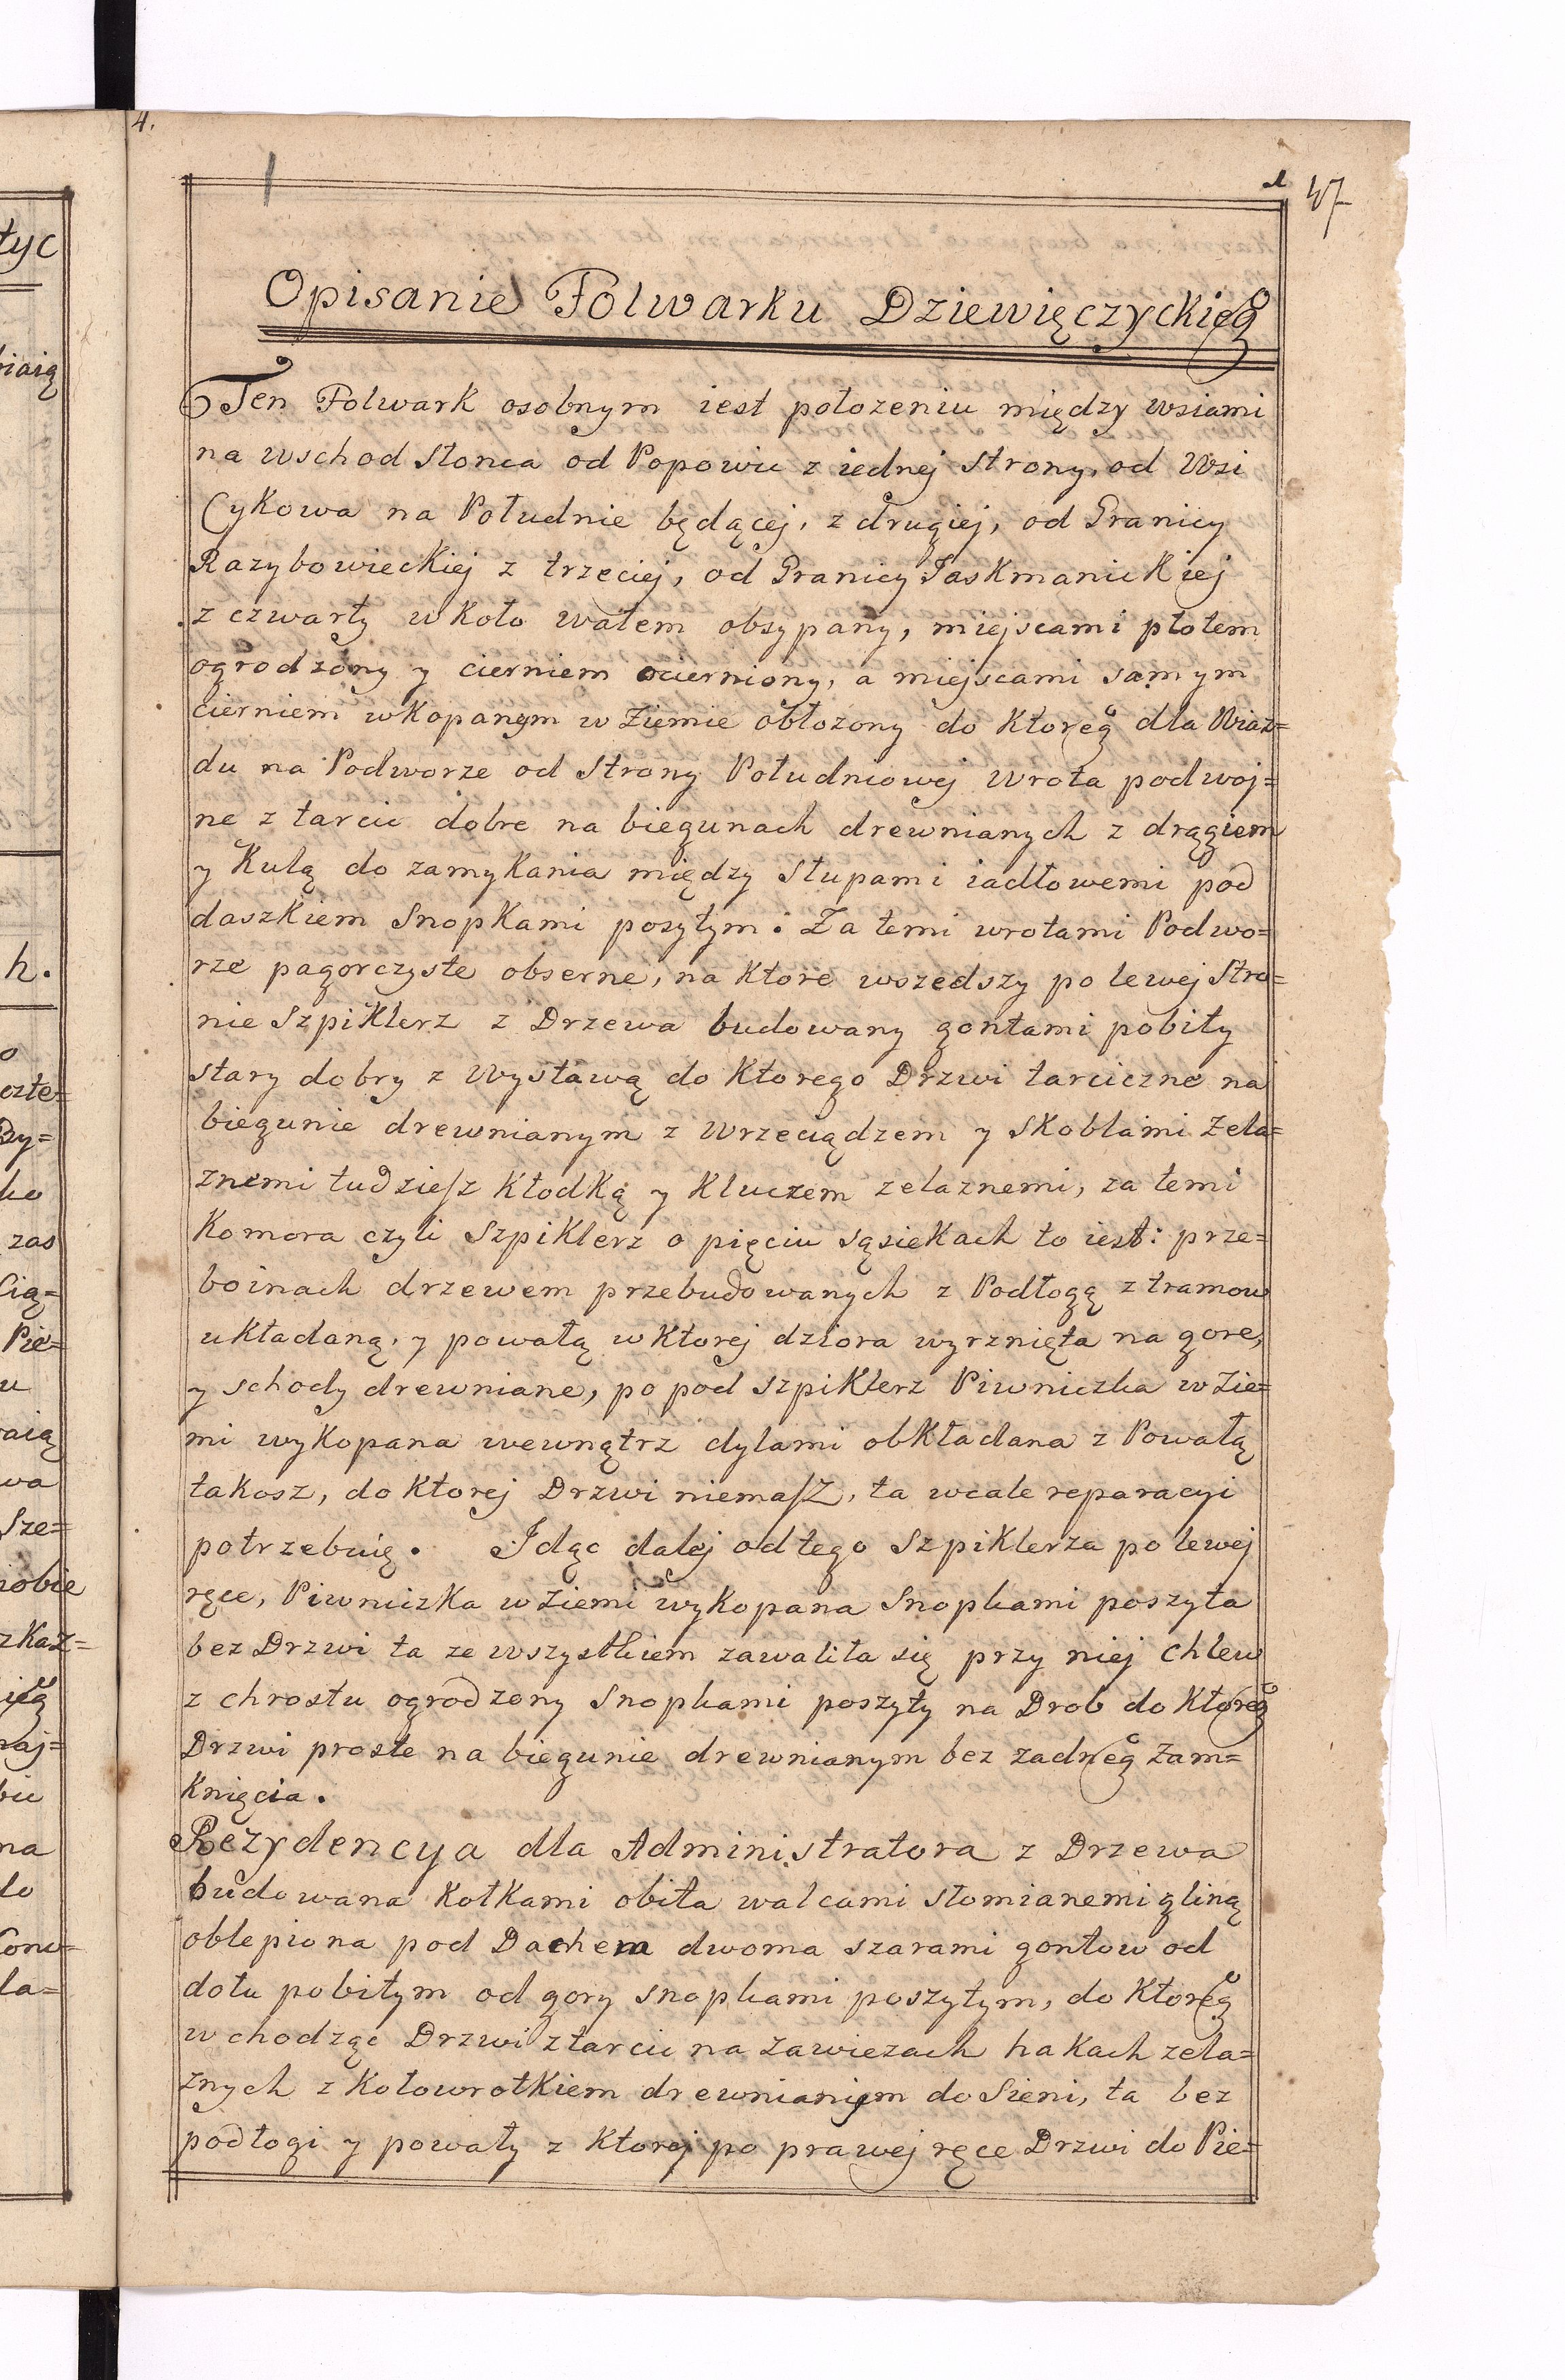 4.
47
Opisanie Folwarku Dziewięczyckieg͞o
Ten Folwark osobnym iest położeniu między wsiami
na wschod słonca od Popowic z iednej strony, od Wsi
Cykowa na Południe będącej, z drugiej, od Granicy
z trzeciej, od Granicy Jaskmanickiej
z czwarty wkoło wałem obsypany, miejscami płotem
ogrodzony y cierniem ocierniony, a miejscami samym
cierniem wkopanym w Ziemie obłożony do ktoreg͞o dla Wiaz=
du na Podworze od Strony Południowej Wrota podwoj=
ne z tarcic dobre na biegunach drewnianych z drągiem
y Kulą do zamykania między słupami iadłowemi pod
daszkiem Snopkami poszytym. Za temi wrotami Podwo=
rze pagorczyste obserne, na Ktore wszedszy po lewej Stro=
nie Szpiklerz z Drzewa budowany gontami pobity
stary dobry z Wystawą do Ktorego Drzwi tarciczne na
biegunie drewnianym z Wrzeciądzem y skoblami Zela=
znemi tudziesz Kłodką y Kluczem zelaznemi, za temi
Komora czyli Szpiklerz o pięciu sąsiekach to iest: prze=
boinach drzewem przebudowanych z Podłogą z tramow
układaną, y powałą w Ktorej dziora wyrznięta na gore,
y schody drewniane, po pod szpiklerz Piwniczka w Zie=
mi wykopana wewnątrz dylami obkładana z Powałą
takosz, do Ktorej Drzwi niemasz, ta wcale reparacyi
potrzebuię. Idąc dalej od tego Szpiklerza po lewej
ręce, Piwniczka w Ziemi wykopana Snopkami poszyta
bez Drzwi ta ze wszystkiem zawaliła się przy niej chlew
z chrostu ogrodzony Snopkami poszyty na Drob do Ktoreg͞o
Drzwi proste na biegunie drewnianym bez zadneg͞o Zam=
Knięcia.
Rezydencya dla Administratora z Drzewa
budowana Kołkami obita walcami słomianemi gliną
oblepiona pod Dachem dwoma szarami gontow od
dołu pobitym od gory snopkami poszytym, do Ktoreg͞o
wchodząc Drzwi z tarcic na zawiezach hakach zela=
znych z Kołowrotkiem drewnianym do Sieni, ta bez
podłogi y powały z Ktorej po prawej ręce Drzwi do Pie=